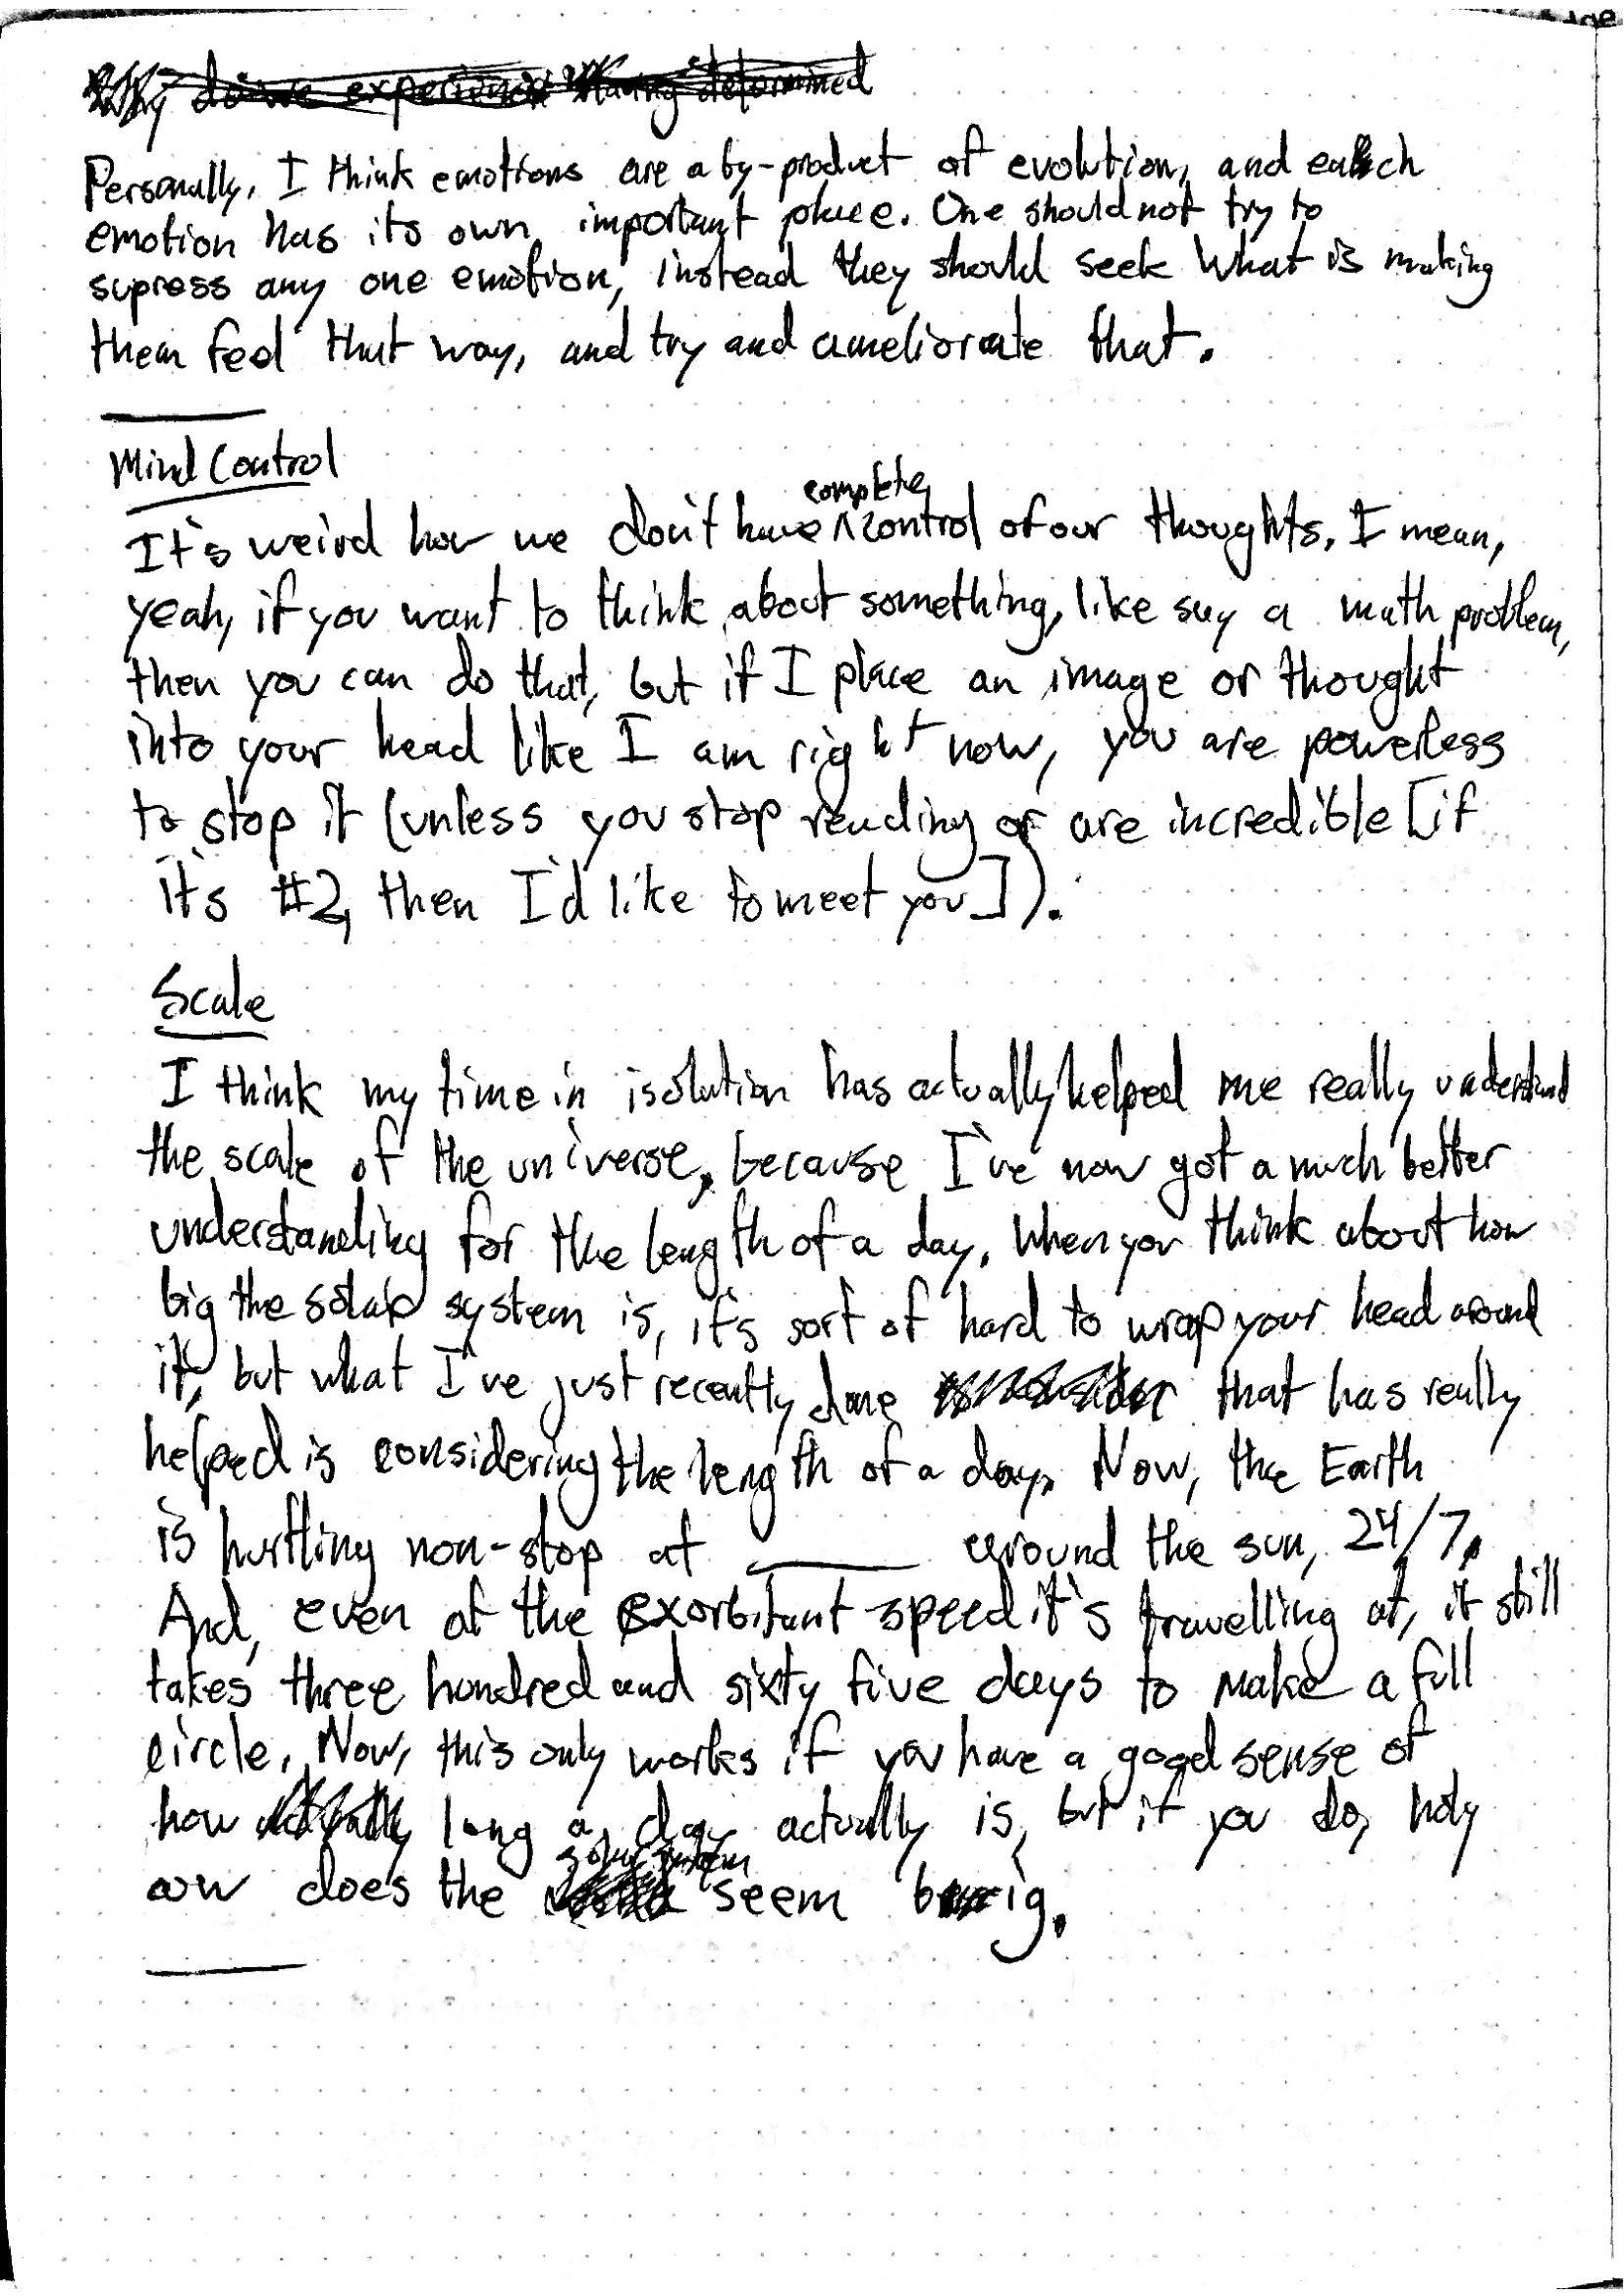 do we experience determined
Personally, I think emotions are a by-product of evolution, and each
emotion has its own important place. One should not try to
supress any one emotion, instead they should seek what is making
them feel that way, and try and ameliorate that.
Mind Control
It's weird how we don't have complete control of our thoughts. I mean,
yeah, if you want to think about something, like say a math problem,
then you can do that, but if I place an image or thought
into your head like I am right now, you are powerless
to stop it (unless you stop reading or are incredible [if
it's #2, then I'd like to meet you]).
Scale
I think my time in isolation has actually helped me really understand
the scale of the universe, because I've now got a much better
understanding for the length of a day. When you think about how
big the solar system is, it's sort of hard to wrap your head around
it, but what I've just recently done that has really
helped is considering the length of a day. Now, the Earth
is hurtling non-stop at ______ around the sun, 24/7.
And, even at the exorbitant speed it's travelling at, it still
takes three hundred and sixty five days to make a full
circle. Now, this only works if you have a good sense of
how long a day actually is, but if you do, holy
cow does the solar system seem big.